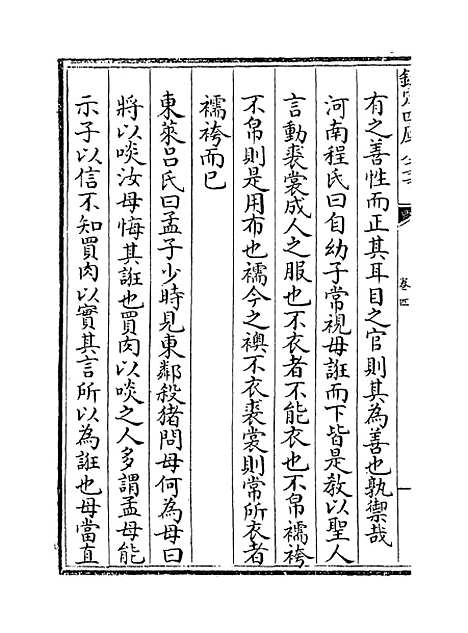 欽定四庫全書
卷四
有之善性而正其耳目之官則其為善也孰禦哉
河南程氏曰自幼子常視母誑而下皆是教以聖人
言動裘裳成人之服也不衣者不能衣也不帛襦袴
不帛則是用布也襦今之襖不衣裘裳則常所衣者
襦袴而已
東萊呂氏曰孟子少時見東鄰殺猪問母何為母曰
將以啖汝母悔其誑也買肉以啖之人多謂孟母能
示子以信不知買肉以實其言所以為誑也母當直